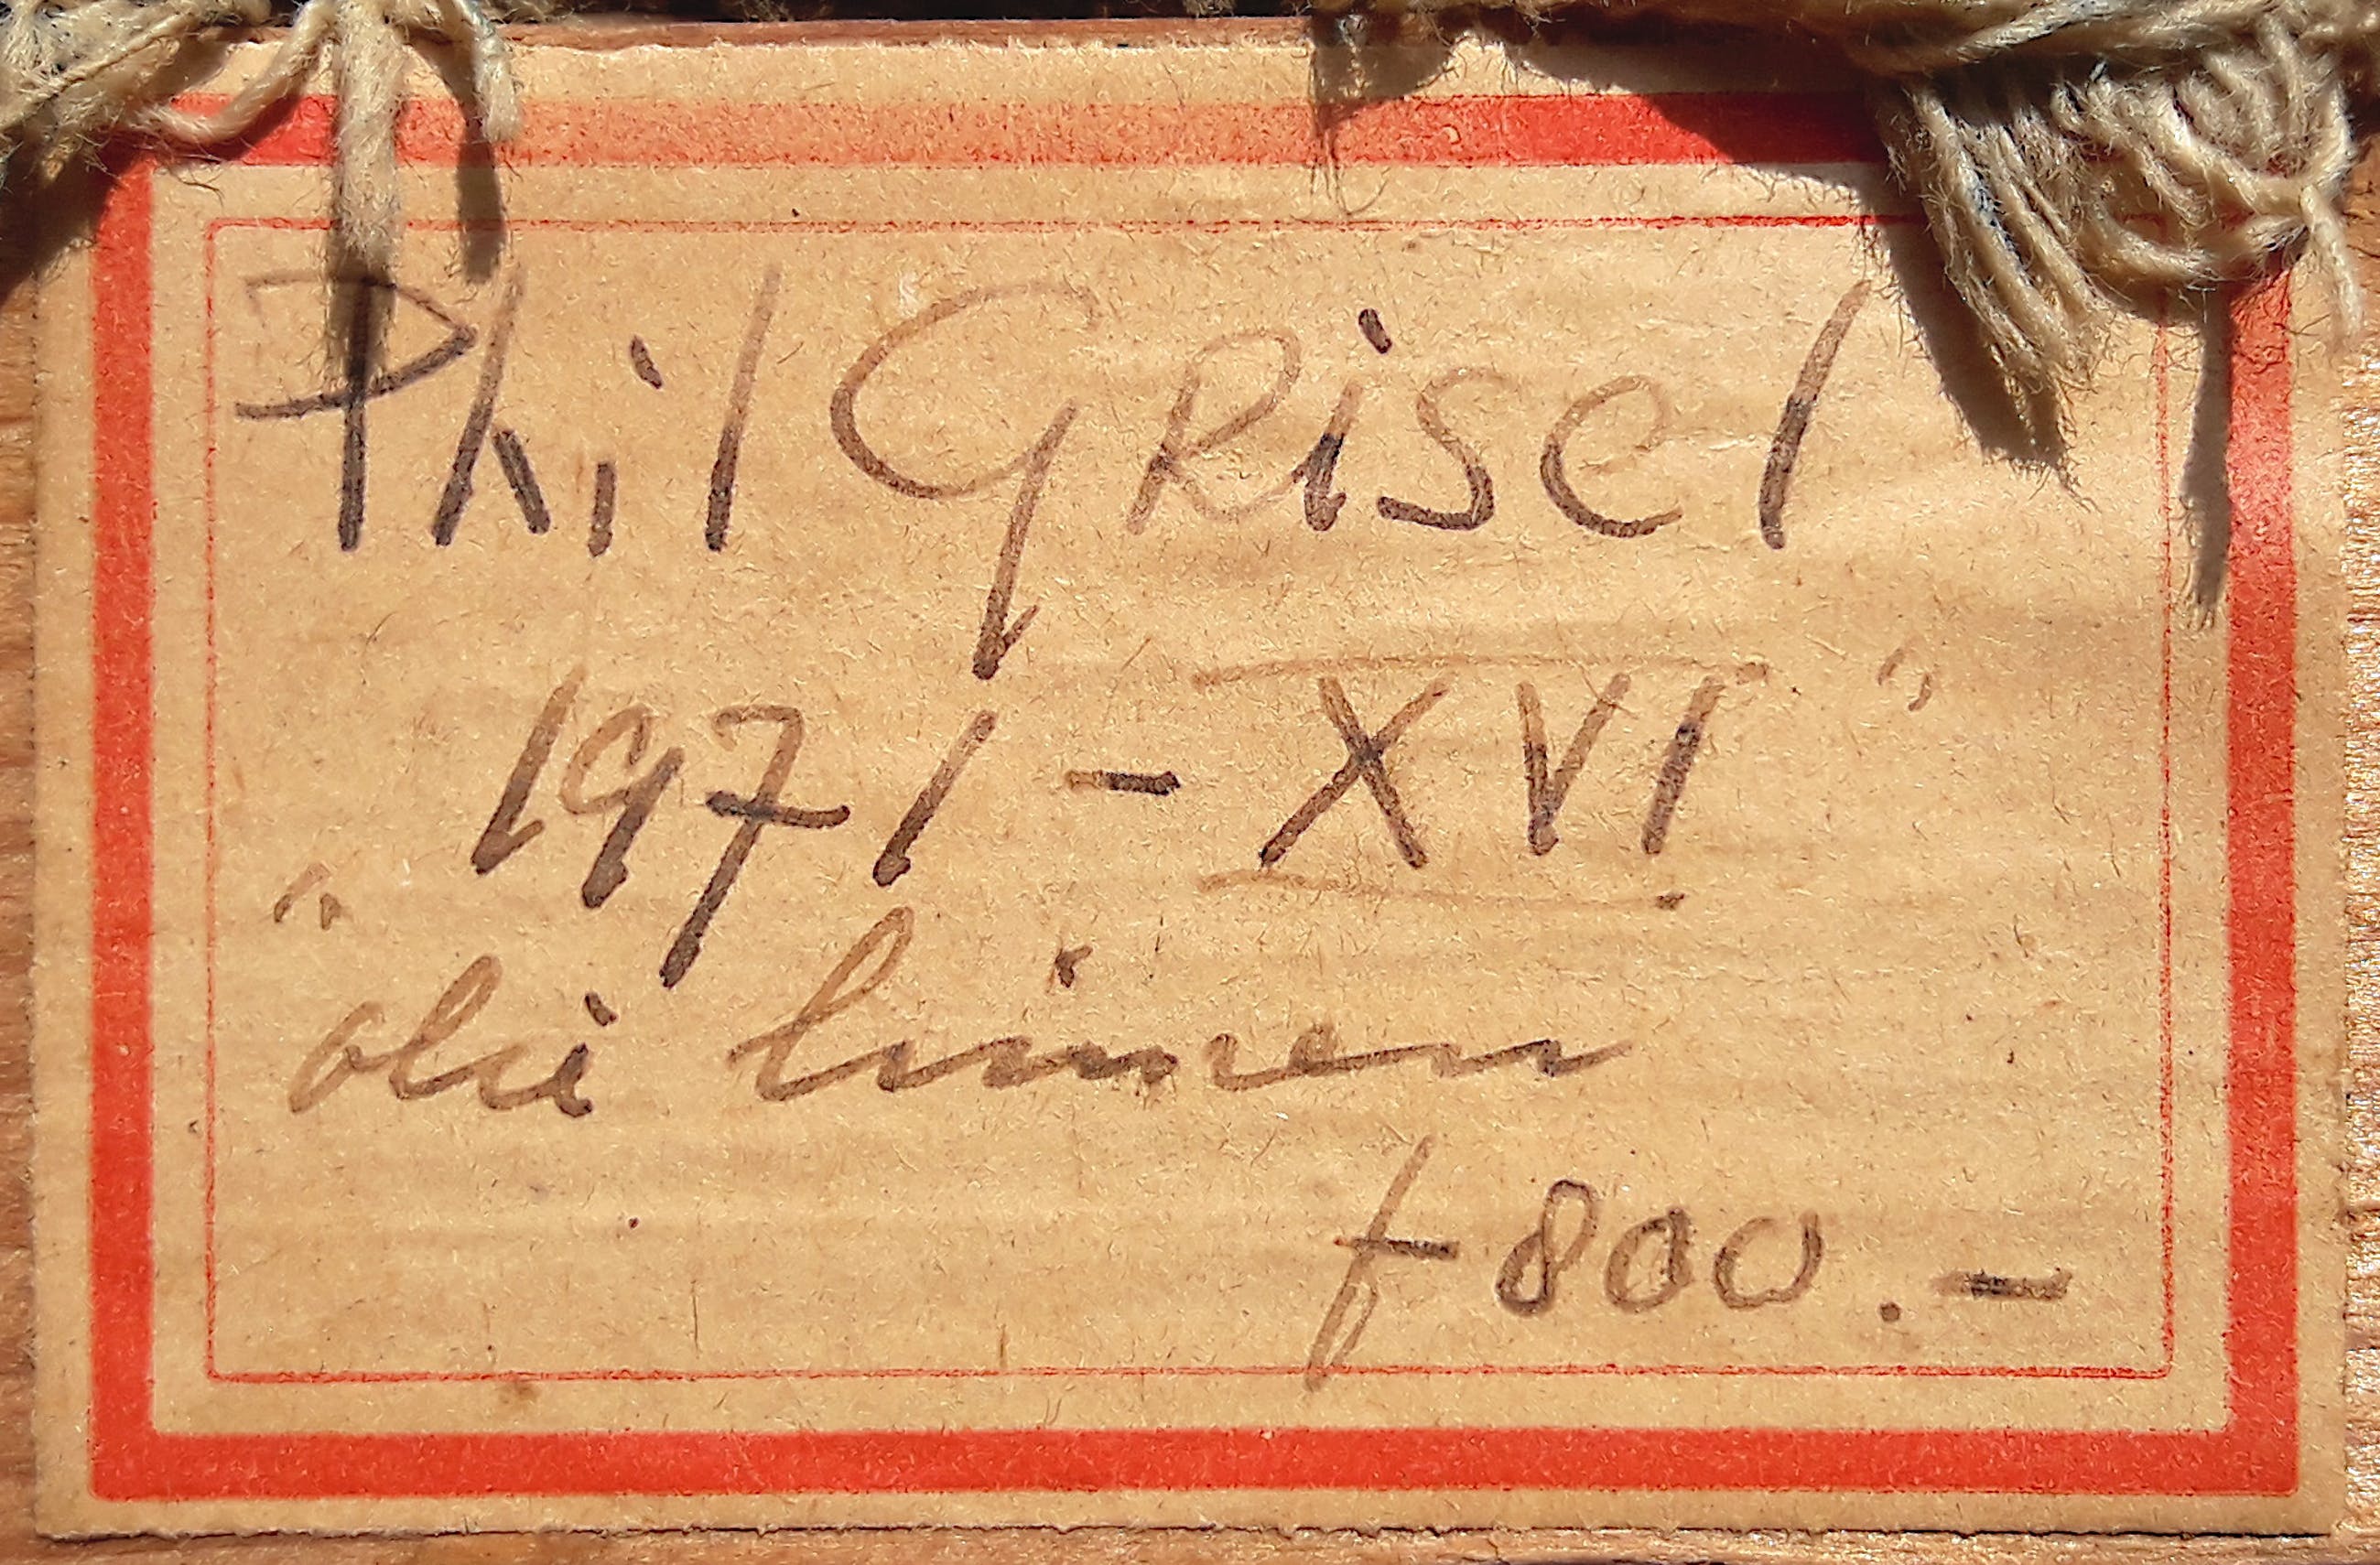 Phil Grisel
" 1971 - XVI "
olie linnen
f 800.-